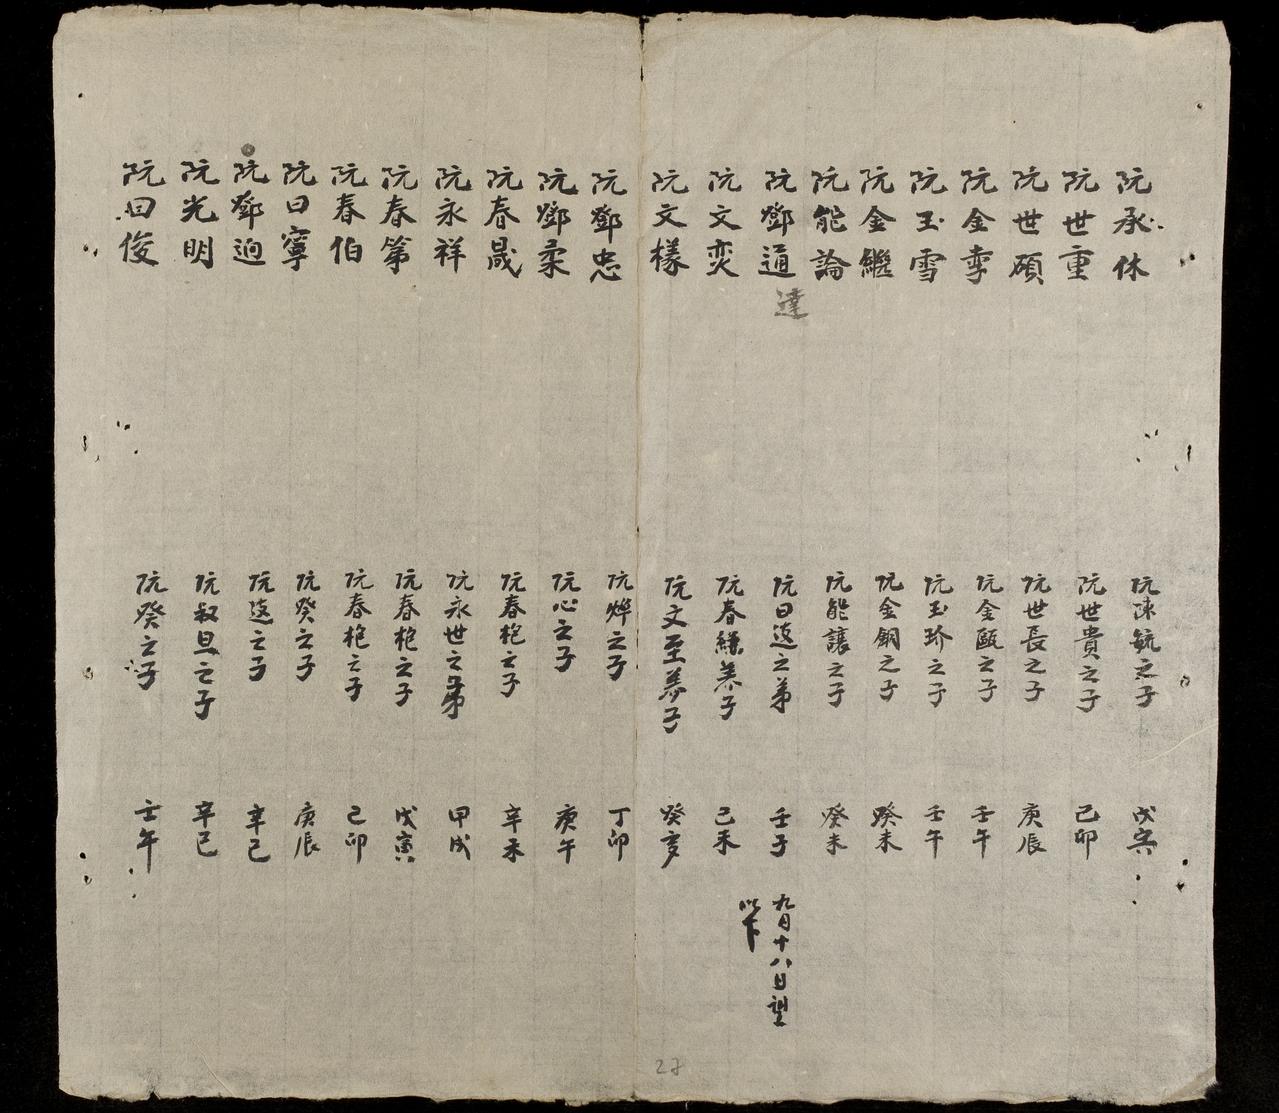 阮承休 阮陳毓之子 戊寅
阮世重 阮世貴之子 己卯
阮世碩 阮世長之子 庚辰
阮金孛 阮金甌之子 壬午
阮玉雪 阮玉珍之子 壬午
阮金繼 阮金鋼之子 癸未
阮能論 阮能讓之子 癸未
阮鄧通 達 阮曰這之弟 壬子 九月十八日望
以下
阮文奕 阮春養子 己未
阮文樣 阮文至養子 癸亥
阮鄧忠 阮燁之子 丁卯
阮鄧柔 阮心之子 庚午
阮春晟 阮春枹之子 辛未
阮永祥 阮永世之弟 甲戌
阮春第 阮春枹之子 戊寅
阮春伯 阮春枹之子 己卯
阮曰寧 阮癸之子 庚辰
阮鄧逈 阮這之子 辛巳
阮光明 阮叔旦之子 辛巳
阮曰俊 阮癸之子 壬午
27